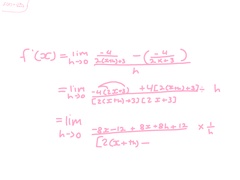 f'(x) = lim h→0 (-4/(2(x+h)+3) - (-4/(2x+3))) / h
= lim h→0 (-4(2x+3) + 4[2(x+h)+3]) / ([2(x+h)+3][2x+3]) ÷ h
= lim h→0 (-8x-12 + 8x + 8h + 12) / ([2(x+h) -) × 1/h